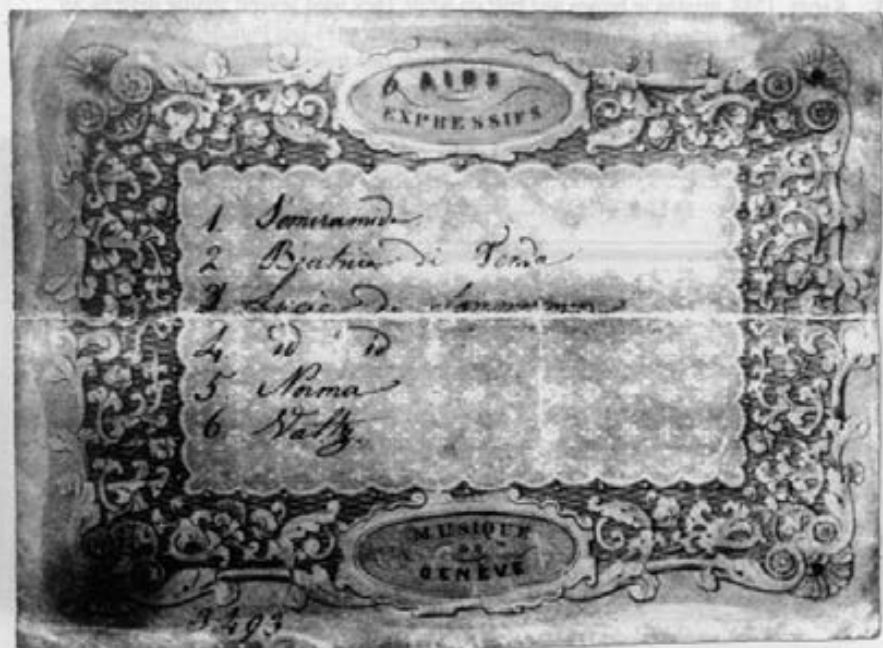 6 AIRS
EXPRESSIFS
1 Semiramide
2 Beatrice di Tenda
3 Lucia di Lammermoor
4 id id
5 Norma
6 Waltz.
MUSIQUE
DE
GENÈVE
493